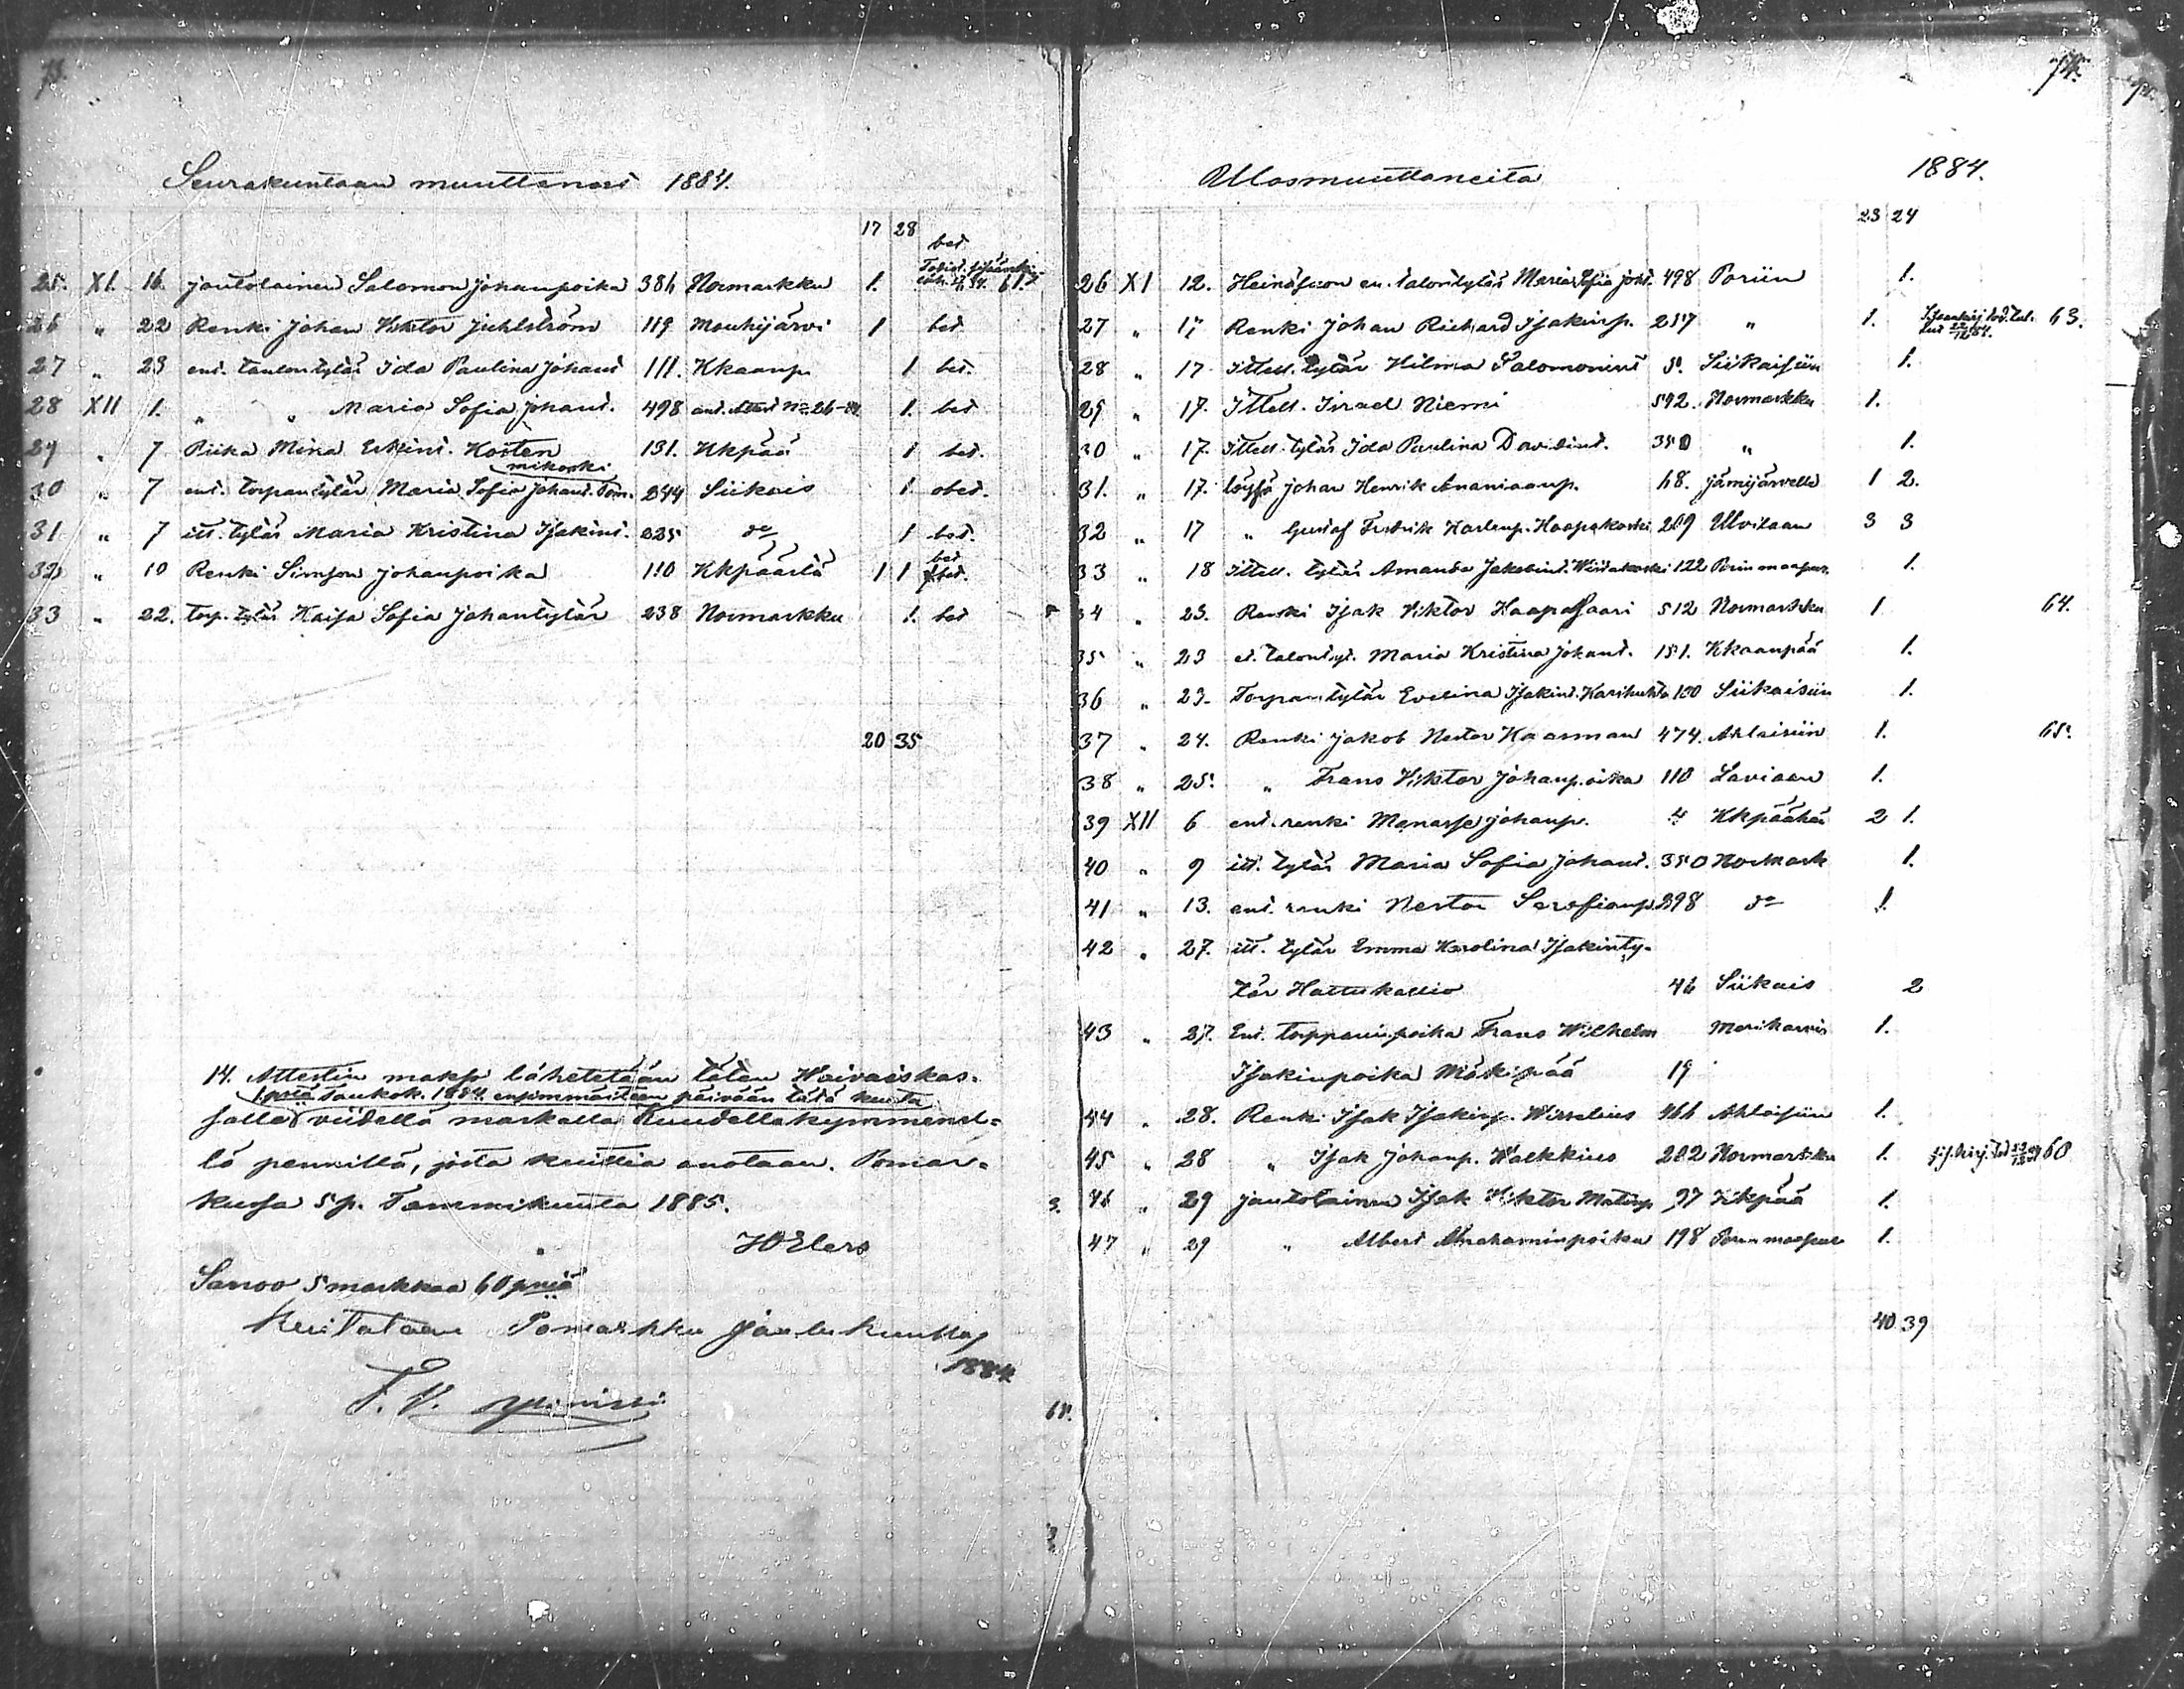 Seurakuntaan muuttanas 1884.
17 28
25. XI. 16. joutolainen Salomon Johanpoika 386 Normarkku 1. bet. 61.
26 " 22 Renki Johan Viktor Juhlström 119 Mouhijärvi 1 bet.
27 " 23 ent. taulontytär Ida Paulina Johant 111. Kkaanp. 1 bet.
28 XII 1. " " Maria Sofia Johant. 498 ant. Attest No 26-84 1. bet
29 " 7 Piika Miina Erkint. Kosten 131. Kkpää 1 bet.
mikoski
30 " 7 ent. torpantytär Maria Sofia Johant. Pom. 244 Siikais 1. obet.
31 " 7 itt. tytär Maria Kristina Isakint. 225 do 1 bet.
32 " 10 Renki Simson Johanpoika 110 Kkpäästä 1 1 bet
33 " 22. torp. tytär Kaisa Sofia Johantytär 238 Normarkku 1. bet
20 35
14. Attestin maksu lähetetään täten Vaivaiskas-
1 p:stä Toukok. 1884 ensimmäiseen päivään tätä kuuta
salla viidellä markalla kuudellakymmenel-
lä pennillä, josta kuittia anotaan. Pomar-
kussa 5 p. Tammikuuta 1885.
Sanoo 5 markkaa 60 pniä
Kuitataan Pomarkku joulukuulla
1884
Ulosmuuttaneita 1884.
23 24
26 XI 12. en. talontytär Maria Sofia Joht. 498 Poriin 1.
27 " 17 Renki Johan Richard Isakinp. 257 " 1. 63.
28 " 17 Ittell. tytär Hilma Salomonint 5. Siikaisiin 1.
29 " 17. Ittell. Israel Niemi 592. Normarkku 1.
30 " 17. Ittell. tytär Ida Paulina Davidint. 350 " 1.
31. " 17. löysä Johan Henrik Ananiaanp. 68. Jämijärvelle 1 2.
32 " 17 " Gustaf Fredrik Karlenp. Haapakoski 269 Ulvilaan 3 3
33 " 18 Ittell. tytär Amanda Jakobint. 122 Porin maaseur. 1.
34 " 23. Renki Isak Viktor Haapasaari 512 Normarkku 1 64.
35 " 23 et. talontyt. Maria Kristina Johant. 151. Kkaanpää 1.
36 " 23. Torpan tytär Evelina Isakint. Karihuhta 100 Siikaisiin 1.
37 " 24. Renki Jakob Nestor Kaasman 474. Ahlaisiin 1. 65.
38 " 25. " Frans Viktor Johanpoika 110 Laviaan 1.
39 XII 6 ent. renki Manasse Johanp. 4 Kkpäähän 2 1.
40 " 9 itt. tytär Maria Sofia Johant. 350 Normark 1.
41 " 13. ent. renki Nestor Serafianp. 298 do 1.
42 " 27. itt. tytär Emma Karolina Isakinty-
tär Hattukallio 46 Siikais 2
43 " 27. Ent. torpparinpoika Frans Wilhelm Merikarvia 1.
Isakinpoika Mäkipää 19
44 " 28. Renki Isak Isakinp. 166 Ahlaisiin 1.
45 " 28 " Isak Johanp. Valkkius 202 Normarkku 1. 60
46 " 29 joutolainen Isak Viktor Matinp 97 Kkpää 1.
47 " 29 " Albert Abrahaminpoika 198 Porin maaseur 1.
40 39